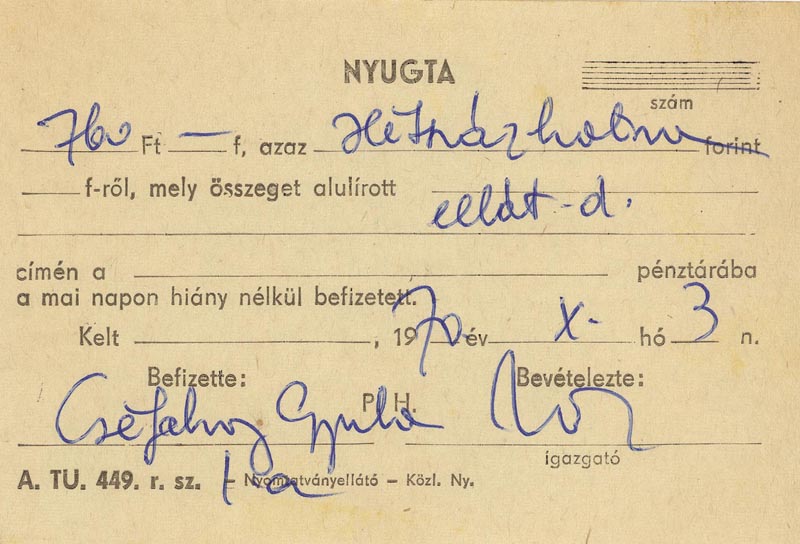 NYUGTA
szám
760 Ft — f, azaz Hétszázhatvan forint
f-ről, mely összeget alulírott
ellát-d.
címén a pénztárába
a mai napon hiány nélkül befizetett.
Kelt , 1970 év X. hó 3 n.
Befizette: P. H. Bevételezte:
Gyula
igazgató
A. TU. 449. r. sz. I a – Nyomtatványellátó – Közl. Ny.